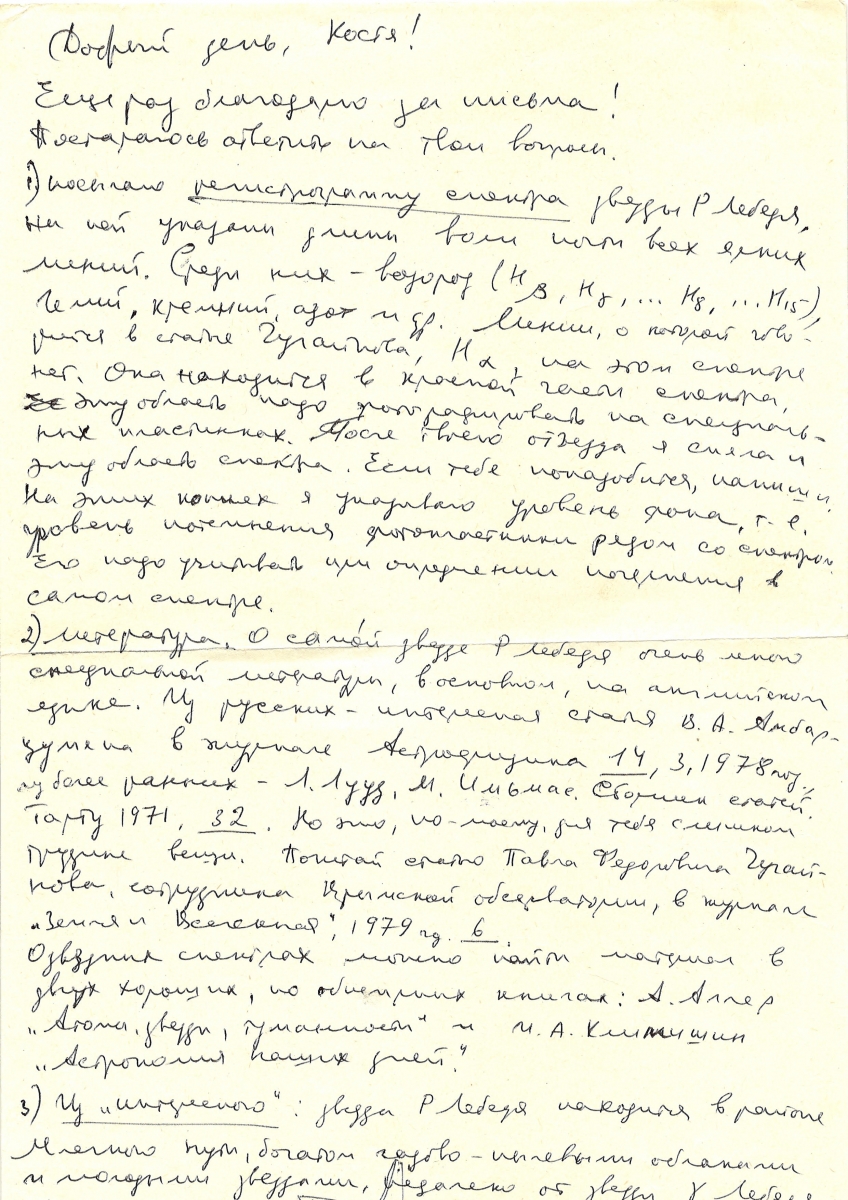 Добрый день, Костя!
Еще раз благодарю за письма!
Постараюсь ответить на твои вопросы.
1) посылаю регистрограмму спектра звезды P Лебедя,
на ней указаны длины волн почти всех ярких
линий. Среди них – водород (Hβ, Hγ, ... H8, ... H15),
гелий, кремний, азот и др. Линии, о которой гово-
рится в статье Чугайнова, Hα, на этом спектре
нет. Она находится в красной части спектра,
эту область надо фотографировать на специаль-
ных пластинках. После твоего отъезда я сняла и
эту область спектра. Если тебе понадобится, напиши.
На этих копиях я указываю уровень фона, т.е.
уровень потемнения фотопластинки рядом со спектром.
Его надо учитывать при определении почернения в
самом спектре.
2) Литература. О самой звезде P Лебедя очень много
специальной литературы, в основном, на английском
языке. Из русских – интересная статья В. А. Амбар-
цумяна в журнале Астрофизика 14, 3, 1978 год,
из более ранних – Л. Лууд, М. Ильмас. Сборник статей.
Тарту 1971, 32. Но это, по-моему, для тебя слишком
трудные вещи. Почитай статью Павла Федоровича Чугай-
нова, сотрудника Крымской обсерватории, в журнале
„Земля и Вселенная", 1979 год. 6.
О звездных спектрах можно найти материал в
двух хороших, но обширных книгах: А. Аллер
„Атомы, звезды, туманности" и И. А. Климишин
„Астрономия наших дней".
3) Из „интересного": звезда P Лебедя находится в районе
Млечного пути, богатом газово-пылевыми облаками
и молодыми звездами, недалеко от звезды γ Лебедя